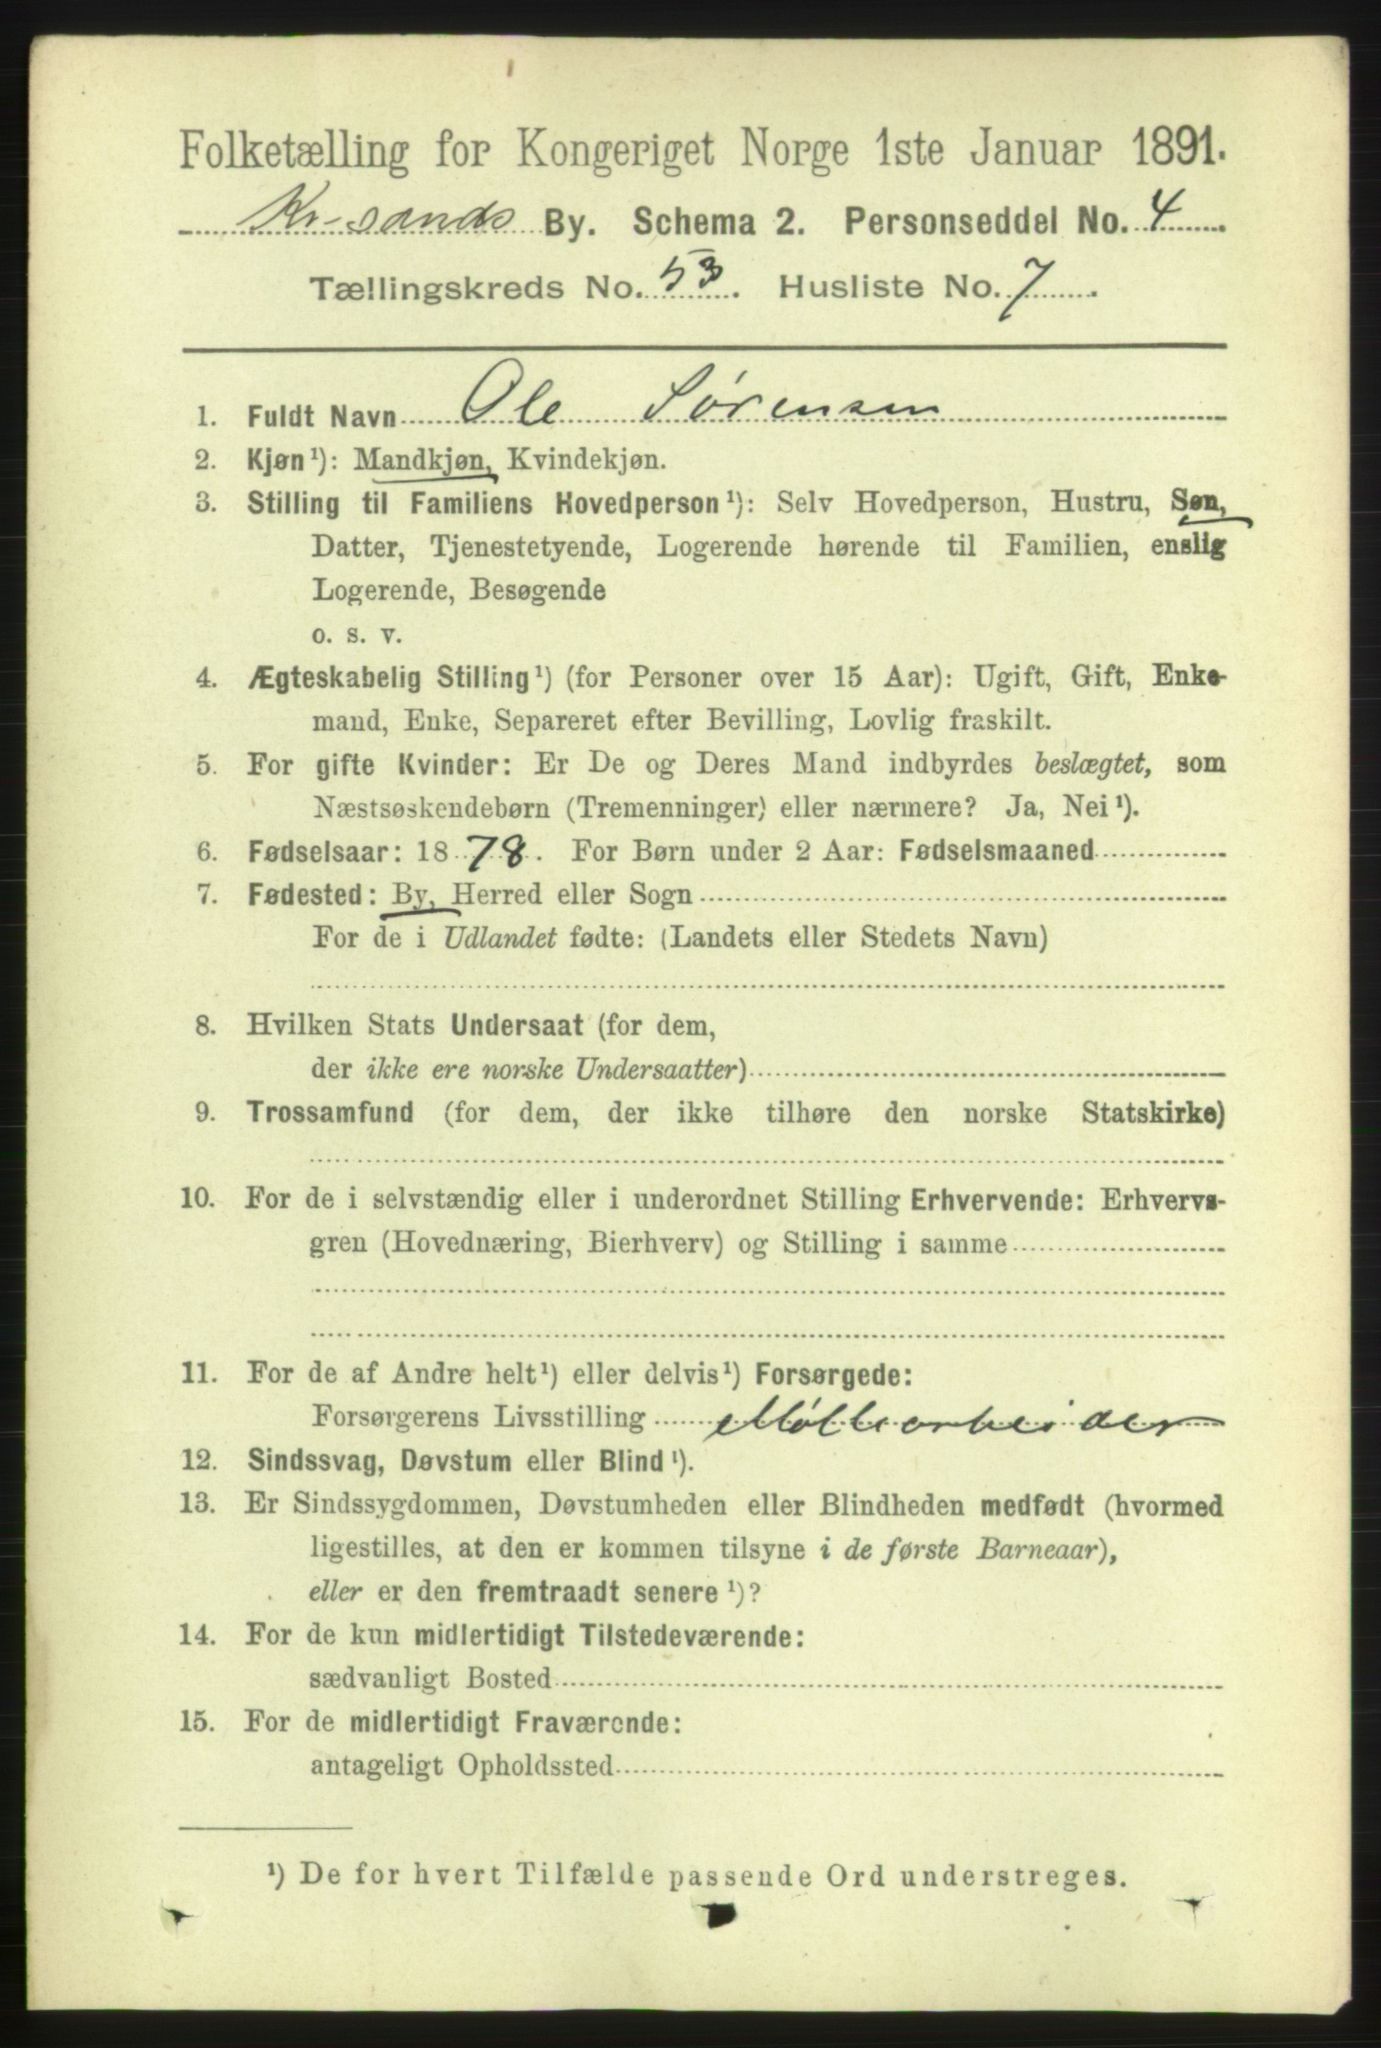 Folketælling for Kongeriget Norge 1ste Januar 1891.
Kr-sands By. Schema 2. Personseddel No. 4
Tællingskreds No. 53. Husliste No. 7.
1. Fuldt Navn Ole Sørensen
2. Kjøn¹): Mandkjøn, Kvindekjøn.
3. Stilling til Familiens Hovedperson¹): Selv Hovedperson, Hustru, Søn,
Datter, Tjenestetyende, Logerende hørende til Familien, enslig
Logerende, Besøgende
o. s. v.
4. Ægteskabelig Stilling¹) (for Personer over 15 Aar): Ugift, Gift, Enke-
mand, Enke, Separeret efter Bevilling, Lovlig fraskilt.
5. For gifte Kvinder: Er De og Deres Mand indbyrdes beslægtet, som
Næstsøskendebørn (Tremenninger) eller nærmere? Ja, Nei¹).
6. Fødselsaar: 1878. For Børn under 2 Aar: Fødselsmaaned
7. Fødested: By, Herred eller Sogn
For de i Udlandet fødte: (Landets eller Stedets Navn)
8. Hvilken Stats Undersaat (for dem,
der ikke ere norske Undersaatter)
9. Trossamfund (for dem, der ikke tilhøre den norske Statskirke)
10. For de i selvstændig eller i underordnet Stilling Erhvervende: Erhvervs-
gren (Hovednæring, Bierhverv) og Stilling i samme
11. For de af Andre helt¹) eller delvis¹) Forsørgede:
Forsørgerens Livsstilling Møllearbeider
12. Sindssvag, Døvstum eller Blind¹).
13. Er Sindssygdommen, Døvstumheden eller Blindheden medfødt (hvormed
ligestilles, at den er kommen tilsyne i de første Barneaar),
eller er den fremtraadt senere¹)?
14. For de kun midlertidigt Tilstedeværende:
sædvanligt Bosted
15. For de midlertidigt Fraværende:
antageligt Opholdssted
¹) De for hvert Tilfælde passende Ord understreges.